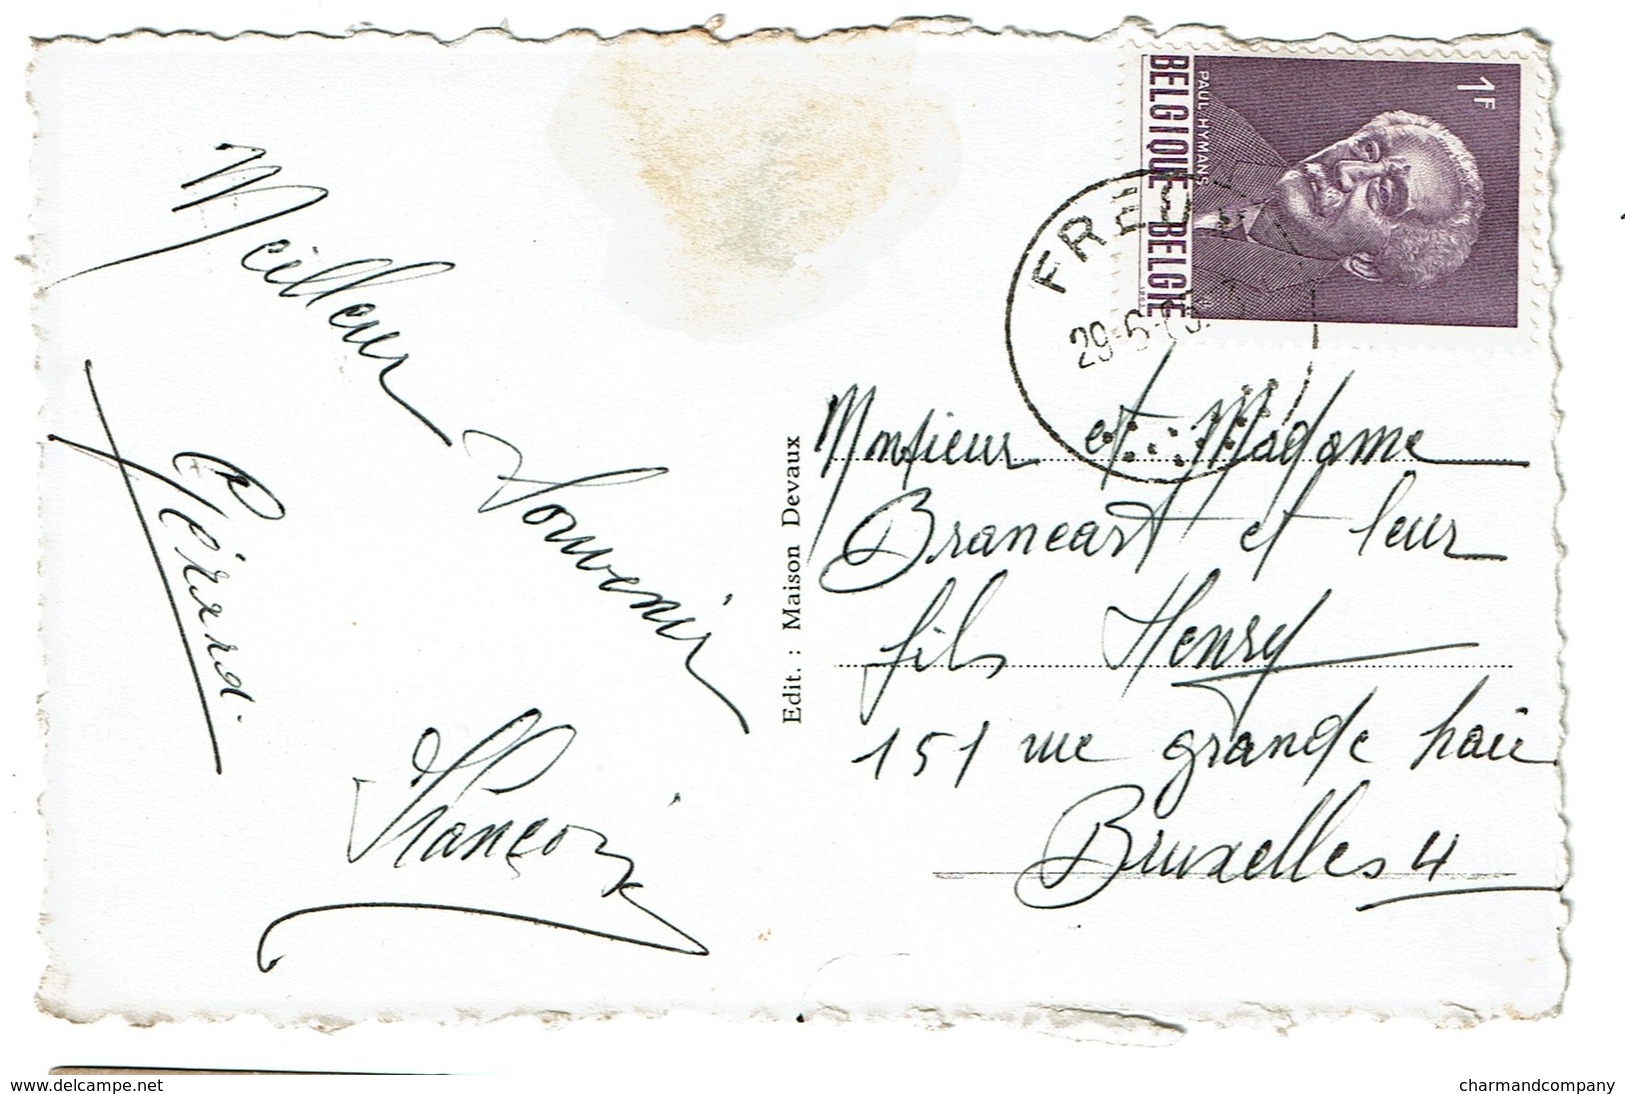 Meilleur Souvenir
Gérard.
François
Edit. : Maison Devaux
1F
PAUL-HYMANS
BELGIQUE-BELGIE
29-6-
Monsieur et Madame
Brancart et leur
fils Henry
151 rue grande haie
Bruxelles 4
www.delcampe.net
charmandcompany